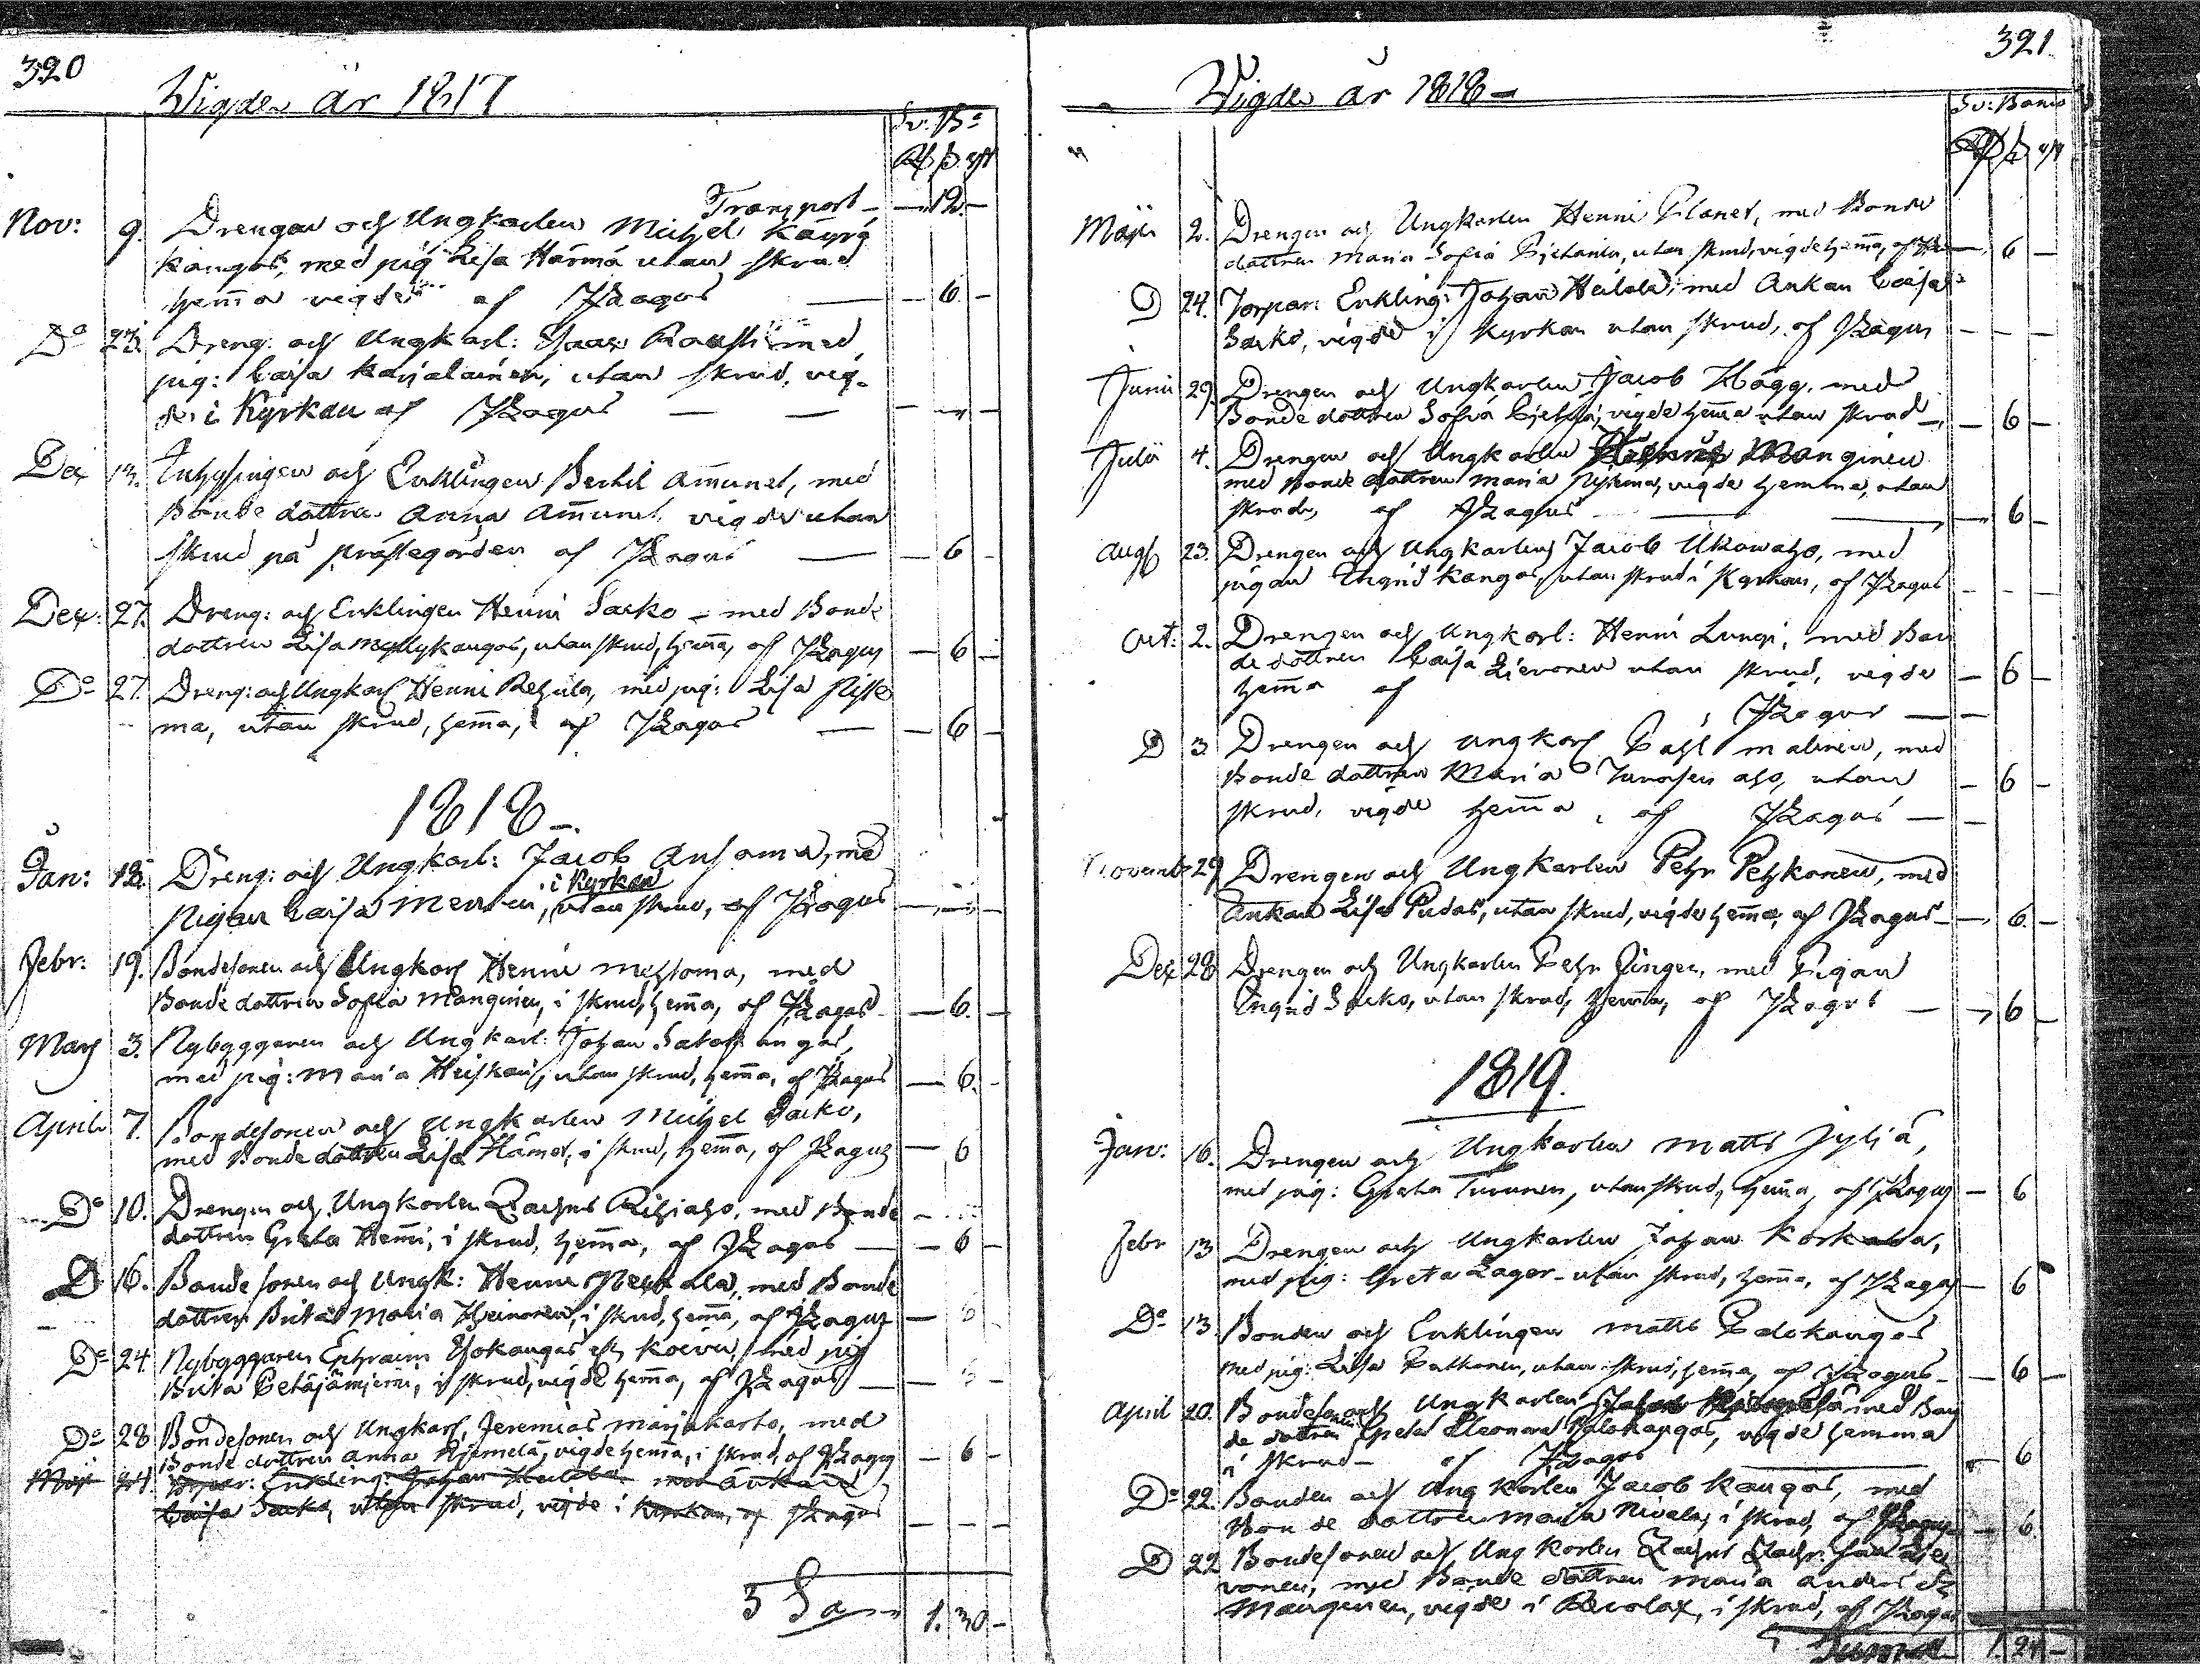 320
Wigde år 1817
Sv. Bo
Transport — 12 —
Nov: 9. Drengen och Ungkarlen Michel Käyrä
kangas, med pig Lisa Härmä utan skrud
hem̄a vigde af JZagus — — 6 —
Do 23. Dreng: och Ungkarl: Isaac Rausti med
pig: Caisa Karjalainen, utan skrud, vig-
de i Kyrkan af JZagus — —
Dec 13. Inhysingen och Enklingen Bertil Am̄unet, med
Bonde dottren Anna Am̄unet, vigde utan
skrud på prästegården af JZagus — — 6 -
Dec: 27. Dreng: och Enklingen Henric Sarko — med Bonde
dottren Lisa Myllykangas, utan skrud, hem̄a, af JZagus — 6 —
Do 27. Dreng: och Ungkarl Henric Rehula, med pig: Lisa Piste
ma, utan skrud, hem̄a, af JZagus — — 6 —
1818 —
Jan: 18. Dreng: och Ungkarl: Jacob Ansama, med
i Kyrkan
Pigan Caisa utan skrud, af JZagus
Febr: 19. Bondesonen och Ungkarl Henric Mehtoma, med
Bonde dottren Sofia Manginen, i skrud, hem̄a, af JZagus — 6. —
Mars 3. Nybyggaren och Ungkarl: Johan
med pig: Maria Heiskari, utan skrud, hem̄a, af JZagus — 6. -
April 7. Bondesonen och Ungkarlen Michel Sarko,
med Bonde dottren Lisa Hämet, i skrud, hem̄a, af JZagus — 6
Do 10. Drengen och Ungkarlen Zachus Rihiaho, med Bonde
dottren Greta Hem̄i, i skrud, hem̄a, af JZagus — — 6 —
D 16. Bondesonen och Ungk: Henric med Bonde
dottren Brita Maria Heinonen, i skrud, hem̄a, af JZagus — 6
Do 24. Nybyggaren Ephraim Isokangas eller Koivu, med pig
Brita Petäjämiemi, i skrud, vigde hem̄a, af JZagus — — 6
Do 28 Bondesonen och Ungkarl, Jeremias Marjakarto, med
Bonde dottren Anna Niemelä, vigde hem̄a, i skrud, af JZagus — 6 —
Maji 24 Torpar: Enkling: Johan Heilala med Ankan
Caisa Sarko, utan skrud, vigde i Kyrkan, af JZagus — — —
Sa 1. 30 —
321.
Wigde år 1818 —
Sv: Banco
Maji 2. Drengen och Ungkarlen Henric Planet, med Bonde
dottren Maria Sofia utan skrud, vigde hem̄a, af — 6 —
D 24. Torpar: Enkling: Johan Heilala, med Ankan Caisa
Sarko, vigde i Kyrkan utan skrud, af JZagus — — —
Junii 29. Drengen och Ungkarlen Jacob Hägg, med
Bonde dottren Sofia vigde hem̄a utan skrud — — 6 —
Julii 4. Drengen och Ungkarlen Manginen
med Bonde dottren Maria vigde hemma, utan
skrud, af JZagus — — 6 —
Aug 23. Drengen och Ungkarlen Jacob Ukowaho, med
pigan Ingrid Kangas, utan skrud i Kyrkan, af JZagus — — —
Oct: 2. Drengen och Ungkarl: Henric Lungi, med Bon
de dottren Caisa Lievonen utan skrud, vigde — 6 —
hem̄a af JZagus —
D 3 Drengen och Ungkarl Pahl Malinen, med
Bonde dottren Maria aho, utan — 6 —
skrud, vigde hem̄a, af JZagus —
November 29 Drengen och Ungkarlen Pehr Pehkonen, med
Ankan Lisa Pudas, utan skrud, vigde hem̄a, af JZagus — — 6. —
Dec 28 Drengen och Ungkarlen Pehr Ginger, med Pigan
Ingrid Sarko, utan skrud, hem̄a, af JZagus — — 6 —
1819.
Jan: 16. Drengen och Ungkarlen Matts Jyljä,
med pig: Greta Turunen, utan skrud, hem̄a, af JZagus — 6
Febr 13 Drengen och Ungkarlen Johan Korkala,
med pig: Greta Lager — utan skrud, hem̄a, af JZagus — 6
Do 13. Bonden och Enklingen Matts Palokangas
med pig: Lisa Pulkonen, utan skrud, hem̄a, af JZagus — 6 —
April 20. Bondeson och Ungkarlen Johan med Bon
de dottren Greta Eleonora Palokangas, vigde hemma
i skrud — af JZagus — 6
Do 22. Bonden och Ungkarlen Jacob Kangas, med
Bonde dottren Maria Nivala, i skrud, af JZagus — 6
D 22 Bondesonen och Ungkarlen Zachus Zachr: son Lie
vonen, med Bonde dottren Maria Anders dr
Manginen, vigde i Revolax, i skrud, af JZagus
Summa 1. 24 —